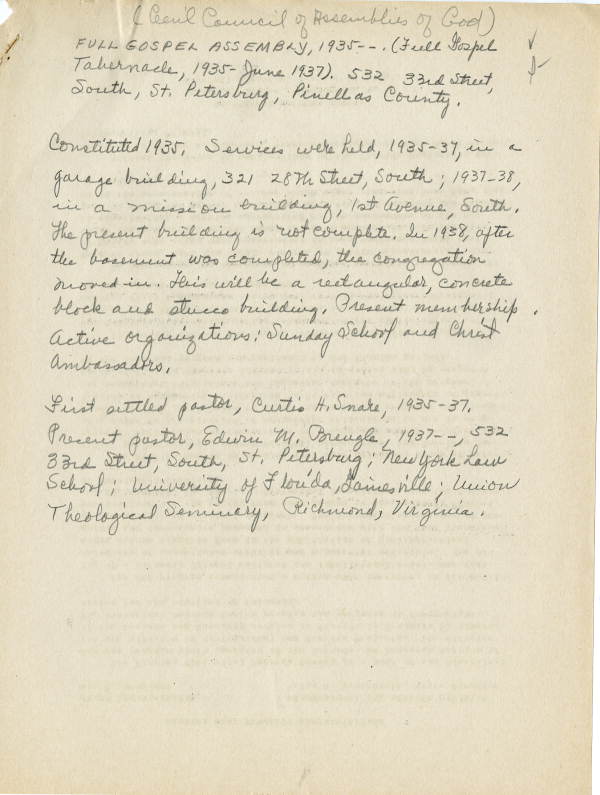 ( Cecil Council of Assemblies of God)
FULL GOSPEL ASSEMBLY, 1935--. (Full Gospel
Tabernacle, 1935- June 1937). 532 33rd Street,
South, St. Petersburg, Pinellas County.
Constituted 1935. Services were held, 1935-37, in a
garage building, 321 28th Street, South; 1937-38,
in a mission building, 1st Avenue, South.
The present building is not complete. In 1938, after
the basement was completed, the congregation
moved-in. This will be a rectangular, concrete
block and stucco building. Present membership .
Active organizations: Sunday School and Christ
Ambassadors.
First settled pastor, Curtis H. Snare, 1935-37.
Present pastor, Edwin M. Brengle, 1937--, 532
33rd Street, South, St. Petersburg; New York Law
School; University of Florida, Gainesville; Union
Theological Seminary, Richmond, Virginia.